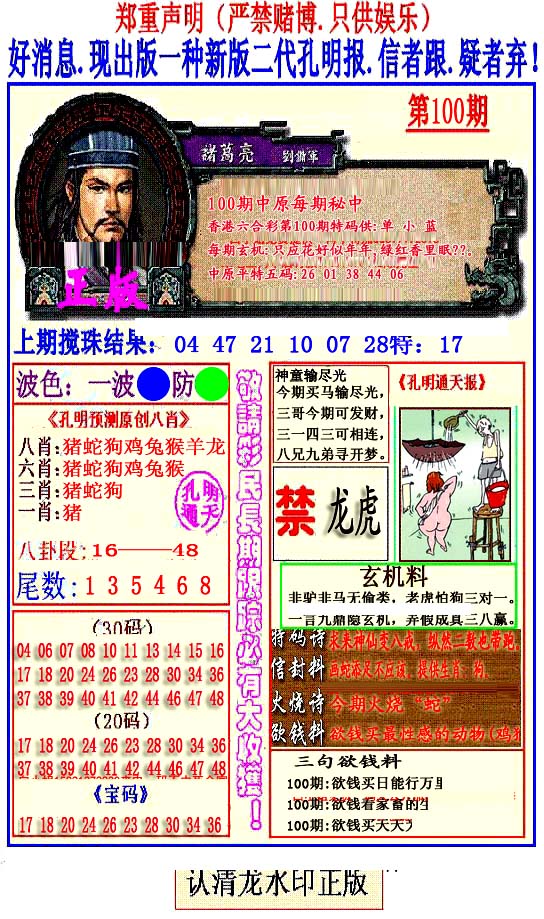 郑重声明（严禁赌博.只供娱乐）
好消息.现出版一种新版二代孔明报.信者跟.疑者弃!
第100期
諸葛亮 劉備軍
100期中原每期秘中
香港六合彩第100期特码供:单 小 蓝
每期玄机:只应花好似年年 绿红香里眠??。
中原平特五码:26 01 38 44 06
正版
上期搅珠结果: 04 47 21 10 07 28特: 17
波色: 一波 防
《孔明预测原创八肖》
八肖:猪蛇狗鸡兔猴羊龙
六肖:猪蛇狗鸡兔猴
三肖:猪蛇狗
一肖:猪
孔明通天
八卦段:16———48
尾数:1 3 5 4 6 8
(30码)
04 06 07 08 10 11 13 14 15 16
17 18 20 24 26 23 28 30 34 36
37 38 39 40 41 42 44 46 47 48
(20码)
17 18 20 24 26 23 28 30 34 36
37 38 39 40 41 42 44 46 47 48
《宝码》
17 18 20 24 23 26 28 30 34 36
敬請彩民長期跟踪必有大收獲！
神童输尽光
今期买马输尽光，
三哥今期可发财，
三一四三可相连，
八兄九弟寻开梦。
《孔明通天报》
禁 龙虎
玄机料
非驴非马无偷类，老虎怕狗三对一。
一言九鼎隐玄机，弄假成真三八赢。
特码诗 求来神仙变八戒，纵然二数也带跑，
信封料 画蛇添足不应该，提供生肖：狗，
火烧诗 今期火烧 “蛇”
欲钱料 欲钱买最性感的动物(鸡
三句欲钱料
100期:欲钱买日能行万里
100期:欲钱看家畜的
100期:欲钱买天天
认清龙水印正版